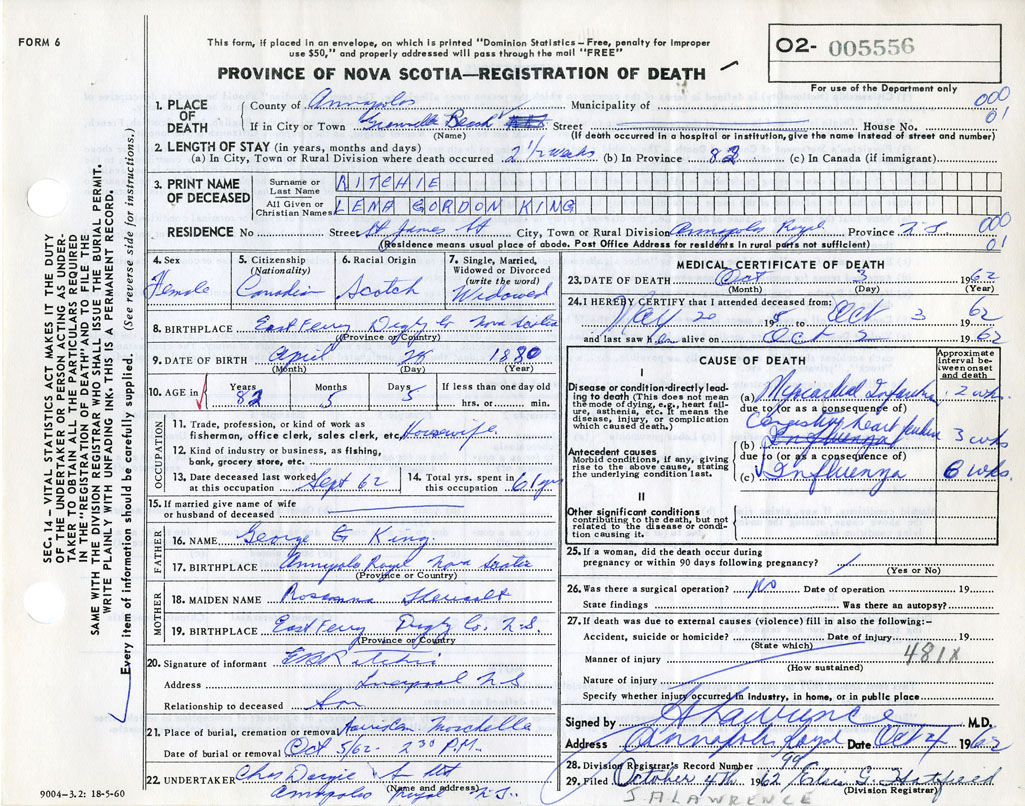 FORM 6
This form, if placed in an envelope, on which is printed "Dominion Statistics–Free, penalty for improper
use $50," and properly addressed will pass through the mail "FREE"
O2- 005556
PROVINCE OF NOVA SCOTIA—REGISTRATION OF DEATH
For use of the Department only
1. PLACE OF DEATH
County of Annapolis Municipality of
000
01
If in City or Town Granville Beach Street House No.
(Name) (If death occurred in a hospital or institution, give the name instead of street and number)
2. LENGTH OF STAY (in years, months and days)
(a) In City, Town or Rural Division where death occurred 2 1/2 weeks (b) In Province 82 (c) In Canada (if immigrant)
3. PRINT NAME OF DECEASED
Surname or Last Name RITCHIE
All Given or Christian Names LENA GORDON KING
000
01
RESIDENCE No Street St James St City, Town or Rural Division Annapolis Royal Province N S
(Residence means usual place of abode. Post Office Address for residents in rural parts not sufficient)
4. Sex
Female
5. Citizenship
(Nationality)
Canadian
6. Racial Origin
Scotch
7. Single, Married,
Widowed or Divorced
(write the word)
Widowed
8. BIRTHPLACE East Ferry Digby Co Nova Scotia
(Province or Country)
9. DATE OF BIRTH April 28 1880
(Month) (Day) (Year)
10. AGE in
Years Months Days If less than one day old
82 5 5 hrs. or min.
OCCUPATION
11. Trade, profession, or kind of work as
fisherman, office clerk, sales clerk, etc. Housewife
12. Kind of industry or business, as fishing,
bank, grocery store, etc.
13. Date deceased last worked
at this occupation Sept 62
14. Total yrs. spent in
this occupation 61 yrs
15. If married give name of wife
or husband of deceased
FATHER
16. NAME George G King.
17. BIRTHPLACE Annapolis Royal Nova Scotia
(Province or Country)
MOTHER
18. MAIDEN NAME Rosanna
19. BIRTHPLACE East Ferry Digby Co. N.S.
(Province or Country
20. Signature of informant E B Ritchie
Address Liverpool N S
Relationship to deceased Son
21. Place of burial, cremation or removal Moschelle
Date of burial or removal Oct 5/62 - 2 30 P.M.
22. UNDERTAKER Chas Dargie
(Name and address)
Annapolis Royal N S.
9004-3.2: 18-5-60
MEDICAL CERTIFICATE OF DEATH
23. DATE OF DEATH Oct 3 1962
(Month) (Day) (Year)
24. I HEREBY CERTIFY that I attended deceased from:
May 20 19 to Oct 3 1962
and last saw h er alive on Oct 2 1962
CAUSE OF DEATH
Approximate
interval be-
tween onset
and death
I
Disease or condition directly lead-
ing to death (This does not mean
the mode of dying, e.g., heart fail-
ure, asthenia, etc. It means the
disease, injury, or complication
which caused death.)
(a) Myocardial Infarction 2 wks.
due to (or as a consequence of)
Congestive heart failure
(b) Influenza 3 wks
due to (or as a consequence of)
(c) Influenza 6 wks.
Antecedent causes
Morbid conditions, if any, giving
rise to the above cause, stating
the underlying condition last.
II
Other significant conditions
contributing to the death, but not
related to the disease or condi-
tion causing it.
25. If a woman, did the death occur during
pregnancy or within 90 days following pregnancy?
(Yes or No)
26. Was there a surgical operation? No Date of operation 19
State findings Was there an autopsy?
27. If death was due to external causes (violence) fill in also the following:–
Accident, suicide or homicide? Date of injury 19
(State which)
481X
Manner of injury
(How sustained)
Nature of injury
Specify whether injury occurred in industry, in home, or in public place
Signed by Lawrence M.D.
Address Annapolis Royal Date Oct 4 1962
28. Division Registrar's Record Number 99
29. Filed October 4th 1962 G. Hatfield
(Division Registrar)
J.A LAWRENCE
SEC. 14 – VITAL STATISTICS ACT MAKES IT THE DUTY
OF THE UNDERTAKER OR PERSON ACTING AS UNDER-
TAKER TO OBTAIN ALL THE PARTICULARS REQUIRED
IN THE "REGISTRATION OF DEATH" AND TO FILE THE
SAME WITH THE DIVISION REGISTRAR WHO SHALL ISSUE THE BURIAL PERMIT.
WRITE PLAINLY WITH UNFADING INK. THIS IS A PERMANENT RECORD.
Every item of information should be carefully supplied. (See reverse side for instructions.)